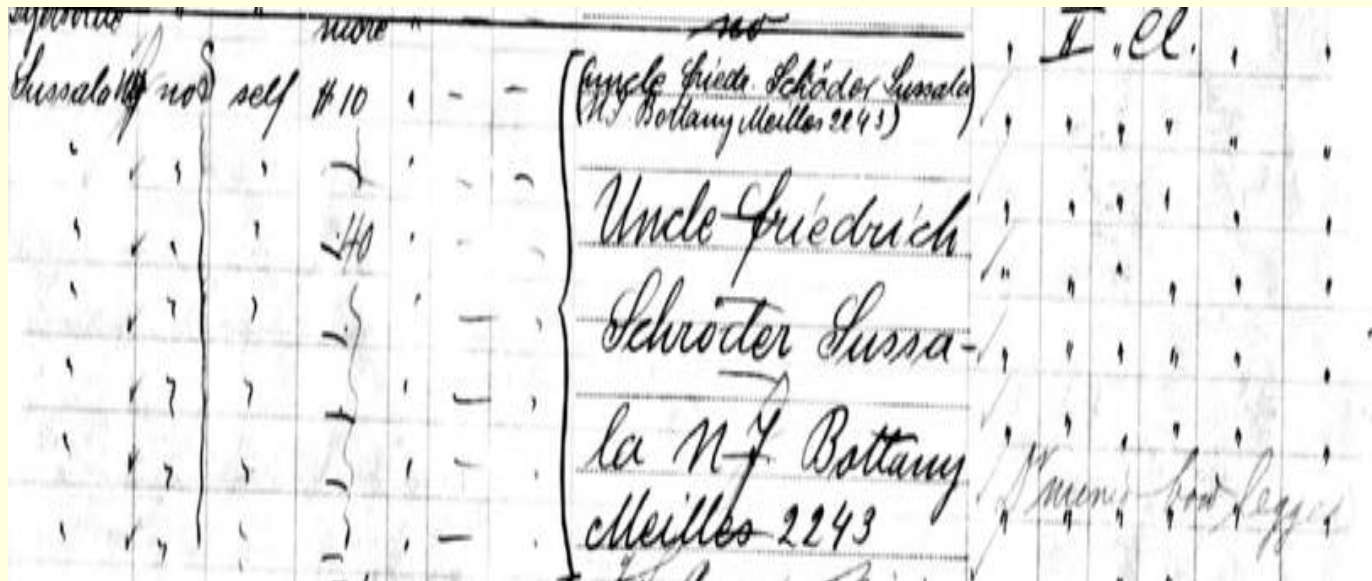 more " no " II. Cl. " "
Sussala NJ no self $10 " - - (uncle Friedr. Schöder Sussala)
(NJ Bottany Meilles 2243)
Uncle Friedrich
40
Schröter Sussa-
la NJ Bottany
Meilles 2243
bow legged